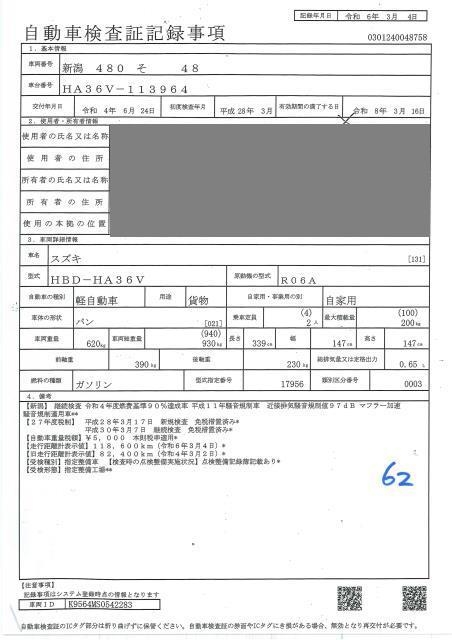 記録年月日 令和 6年 3月 4日
自動車検査証記録事項
0301240048758
1. 基本情報
車両番号 新潟 480 そ 48
車台番号 HA36V-113964
交付年月日 令和 4年 6月 24日 初度検査年月 平成 28年 3月 有効期間の満了する日 令和 8年 3月 16日
2. 使用者・所有者情報
使用者の氏名又は名称
使用者の住所
所有者の氏名又は名称
所有者の住所
使用の本拠の位置
3. 車両詳細情報
車名 スズキ [131]
型式 HBD-HA36V 原動機の型式 R06A
自動車の種別 軽自動車 用途 貨物 自家用・事業用の別 自家用
車体の形状 バン [021] 乗車定員 (4) 2人 最大積載量 (100) 200kg
車両重量 620kg 車両総重量 (940) 930kg 長さ 339cm 幅 147cm 高さ 147cm
前軸重 390kg 後軸重 230kg 総排気量又は定格出力 0.65 L
燃料の種類 ガソリン 型式指定番号 17956 類別区分番号 0003
4. 備考
【新潟】 継続検査 令和4年度燃費基準90%達成車 平成11年騒音規制車 近接排気騒音規制値97dB マフラー加速
騒音規制適用車**
【27年度税制】 平成28年3月17日 新規検査 免税措置済み*
平成30年3月7日 継続検査 免税措置済み*
【自動車重量税額】¥5,000 本則税率適用*
【走行距離計表示値】118,600km (令和6年3月4日)*
【旧走行距離計表示値】82,400km (令和4年3月2日)*
【受検種別】指定整備車 【検査時の点検整備実施状況】点検整備記録簿記載あり*
【受検形態】指定整備工場**
62
【注意事項】
記録事項はシステム登録時点の情報となります
車両ID K9564MS0542283
自動車検査証のICタグ部分は折り曲げずに保管ください。自動車検査証の券面やICタグにき損がある場合、無効となり再交付が必要です。